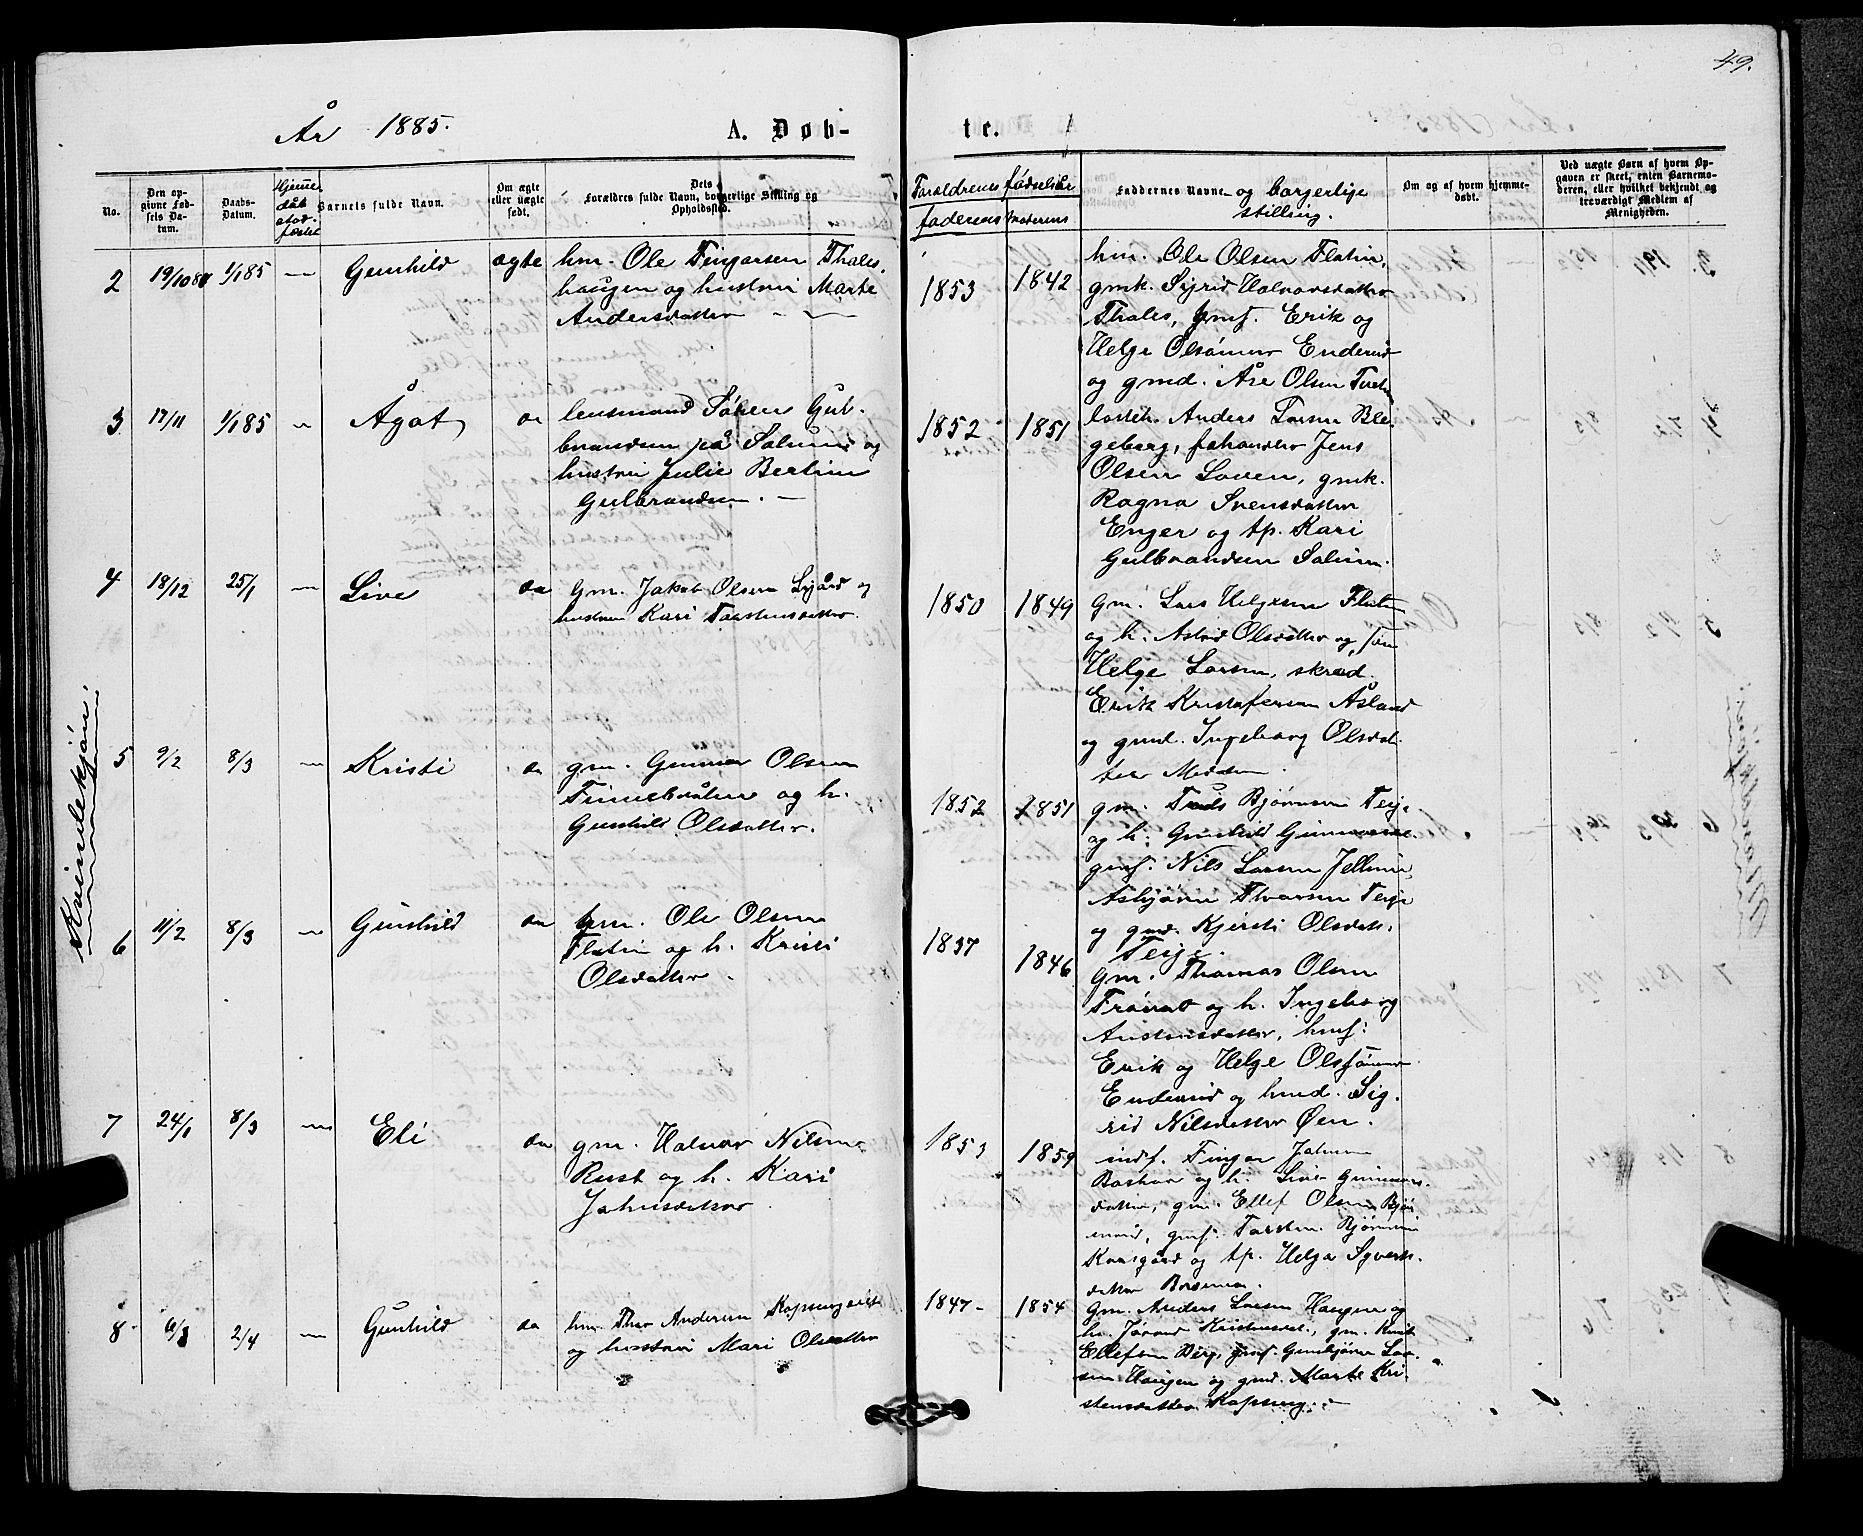 49.
År 1885.
A. Døb-
te.
No.
Den op-
givne Fød-
sels Da-
tum.
Daabs-
Datum.
Hjemme
dåb
stad-
fæstet
Barnets fulde Navn.
Om ægte
eller uægte
født.
Dets
Forældres fulde Navn, borgerlige Stilling og
Opholdssted.
Forældrenes fødselsår
faderens
moderens
Faddernes Navne og borgerlige
stilling.
Om og af hvem hjemme-
døbt.
Ved uægte Børn af hvem Op-
gaven er skeet, enten Barnemo-
deren, eller hvilket bekjendt og
troværdigt Medlem af
Menigheden.
Kvindekjøn:
2 19/10 84 1/1 85 — Gunhild ægte
hm. Ole Fingarsen Thales-
haugen og hustru Marte
Andersdatter
1853 1842
hm. Ole Olsen Flatin,
gmk. Sigrid Halvorsdatter
Thales, gmf. Erik og
Helge Olsønner Enderud
og gmd. Åse Olsen
3 17/11 1/1 85 — Ågot
lensmand Søren Gul-
brandsen på Solum og
hustru Julie Bertine
Gulbrandsen. —
1852 1851
Anders Larsen Ble-
geberg, Jens
Olsen Loven, gmk.
Ragna Svensdatter
Enger og tp. Kari
Gulbrandsen Solum.
4 18/12 25/1 — Live
Gm. Jakob Olsen og
hustru Kari Torstensdatter.
1850 1849
Gm. Lars Helgesen Flaten
og h. Astrid Olsdatter og søn
Helge Larsen, skræd.
Erik Kristofersen Åsland
og gmd. Ingeborg Olsdat-
ter
5 9/2 8/3 — Kristi
gm. Gunnar Olsen
Finnebråten og h.
Gunhild Olsdatter.
1852 1851
gm. Truls Bjørnsen Teige
og h. Gunhild Gunnarsd.
gmf. Nils Larsen
Asbjørn Teige
og gmd. Kjersti Olsdatt.
Teige.
6 11/2 8/3 — Gunhild
gm. Ole Olsen
Flatin og h. Kristi
Olsdatter.
1837 1846
Gm. Thomas Olsen
og h. Ingeborg
hmf:
Erik og Helge Olsønner
Enderud og hmd. Sig-
rid Nilsdatter Øen.
7 24/1 8/3 — Eli
gm. Halvor Nilsen
Rust og h. Kari
Johnsdatter
1853 1859
indf. Fingar Johnsen
og h. Live Gunnars-
datter, gm. Ellef Olsen
gmf. Torsten Bjørnsen
og tp. Helga Syverts-
datter
8 6/3 2/4 — Gunhild
hm. Thor Andersen
og hustru Mari Olsdatter
1847 — 1854
Gm. Anders Larsen Haugen og
h. Jørand gm. Knut
Ellefsen Berg, gmf. Gunbjørn Lar-
sen Haugen og gmd. Marte Kri-
stensdatter Kopseng. —